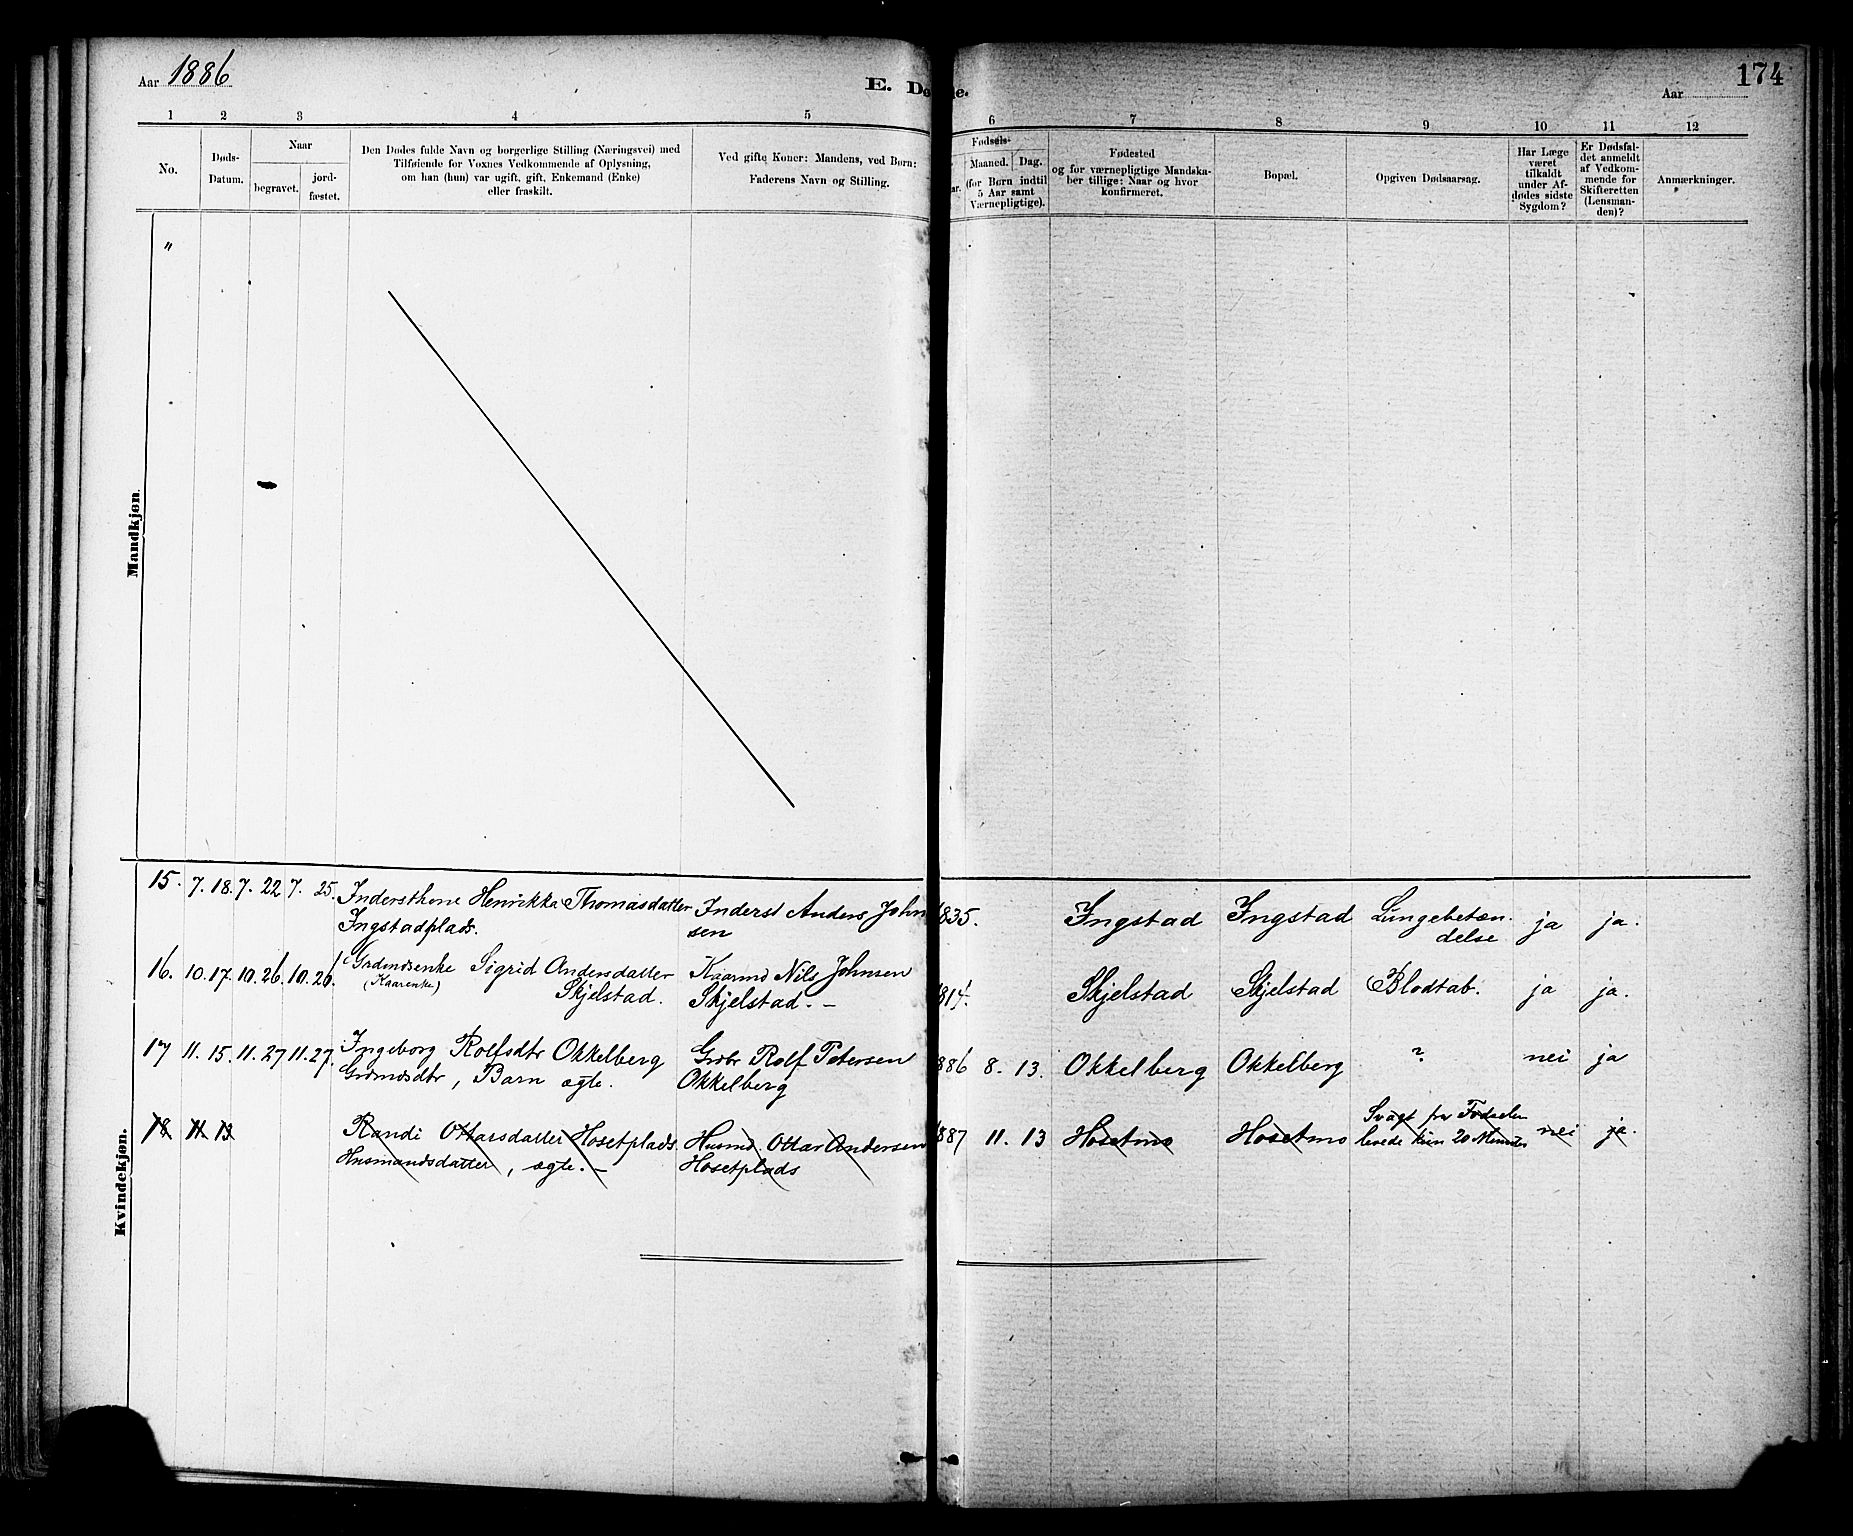 Aar 1886
E. Dø
de.
Aar
174
1 2 3 4 5 6 7 8 9 10 11 12
No.
Døds-
Datum.
Naar
begravet.
jord-
fæstet.
Den Dødes fulde Navn og borgerlige Stilling (Næringsvei) med
Tilføiende for Voxnes Vedkommende af Oplysning,
om han (hun) var ugift, gift, Enkemand (Enke)
eller fraskilt.
Ved gifte Koner: Mandens, ved Børn:
Faderens Navn og Stilling.
Fødsels-
ar.
Maaned.
Dag.
(for Børn indtil
5 Aar samt
Værnepligtige).
Fødested
og for værnepligtige Mandska-
ber tillige: Naar og hvor
konfirmeret.
Bopæl.
Opgiven Dødsaarsag.
Har Læge
været
tilkaldt
under Af-
dødes sidste
Sygdom?
Er Dødsfal-
det anmeldt
af Vedkom-
mende for
Skifteretten
(Lensman-
den)?
Anmærkninger.
"
Mandkjøn.
Kvindekjøn.
15. 7. 18. 7. 22 7. 25. Indersthene Henrikka Thomasdatter Inderst Anders John 1835. Ingstad Ingstad Lungebetæn- ja ja.
Ingstadplads. sen delse
16. 10. 17. 10. 26. 10. 26. Grdmdsenke Sigrid Andersdatter Kaarmd Nils Johnsen 814. Skjelstad Skjelstad Blodtab. ja ja.
(Kaarenke) Skjelstad. Skjelstad. –
17 11. 15. 11. 27 11. 27. Ingeborg Rolfsdtr Okkelberg Grdbr Rolf Petersen 886 8. 13. Okkelberg Okkelberg ? nei ja
Grdmdsdtr, Barn ægte. Okkelberg
18 11 13 Randi Ottarsdatter Hosetplads. Husmd. Ottar Andersen 1887 11. 13 Hosetmo Hosetmo Svagt fra Fødselen nei ja.
Husmandsdatter, ægte. – Hosetplads levede kun 20 Minuter